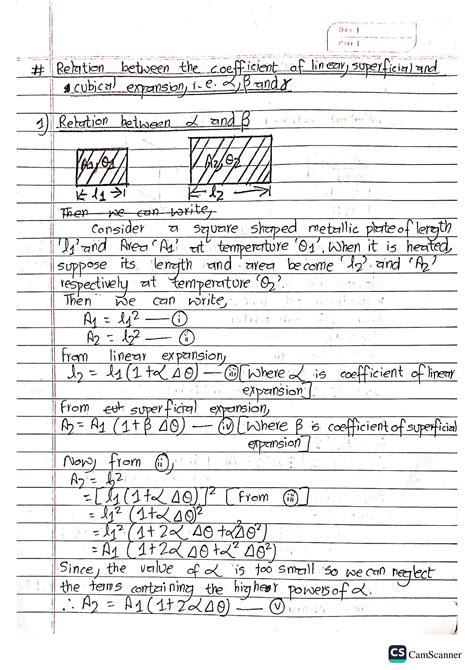 # Relation between the coefficient of linear, superficial and
cubical expansion, i.e. α, β and γ
1) Relation between α and β
A1, θ1
A2, θ2
l1
l2
Then we can write,
Consider a square shaped metallic plate of length
'l1' and Area 'A1' at temperature 'θ1'. When it is heated,
suppose its length and area become 'l2' and 'A2'
respectively at temperature 'θ2'.
Then we can write,
A1 = l1² — (i)
A2 = l2² — (ii)
From linear expansion,
l2 = l1(1+αΔθ) — (iii) [Where α is coefficient of linear
expansion]
From superficial expansion,
A2 = A1 (1+βΔθ) — (iv) [Where β is coefficient of superficial
expansion]
Now, from (ii),
A2 = l2²
= [l1(1+αΔθ)]² [From (iii)]
= l1² (1+αΔθ)²
= l1² (1+2αΔθ+α²Δθ²)
= A1 (1+2αΔθ+α²Δθ²)
Since, the value of α is too small so we can neglect
the terms containing the higher powers of α.
∴ A2 = A1(1+2αΔθ) — (v)
CS CamScanner